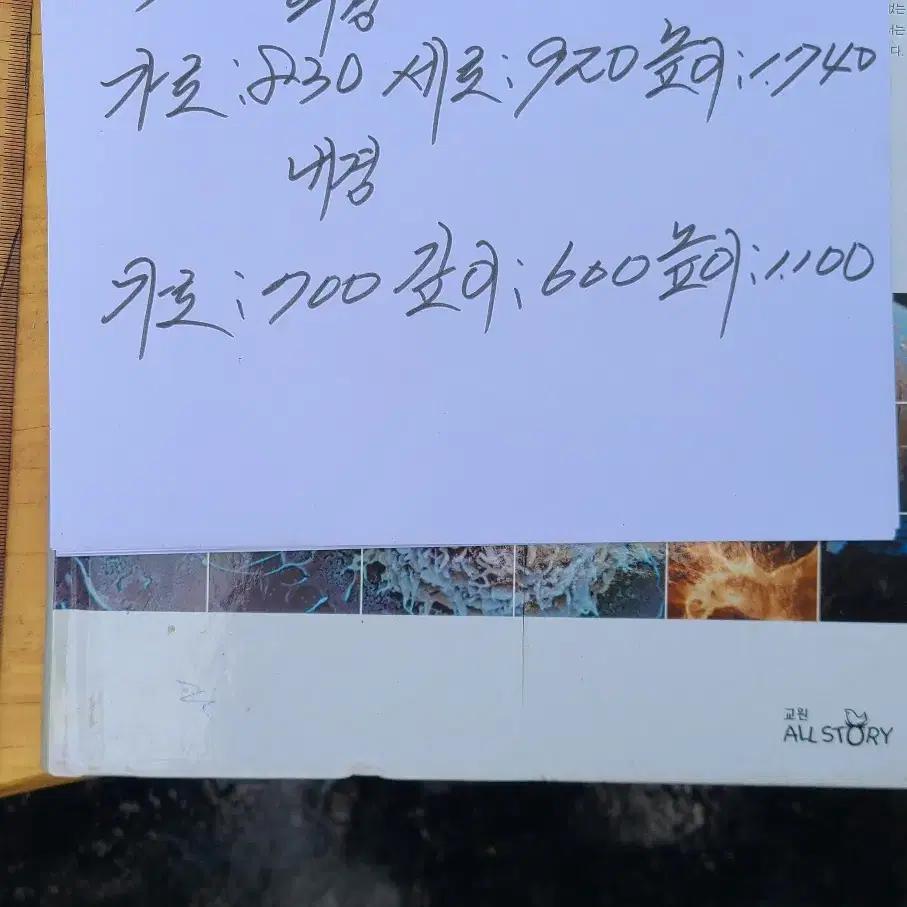 외경
가로:830 세로:920 높이:1.740
내경
가로:700 깊이:600 높이:1.100
교원
ALL STORY